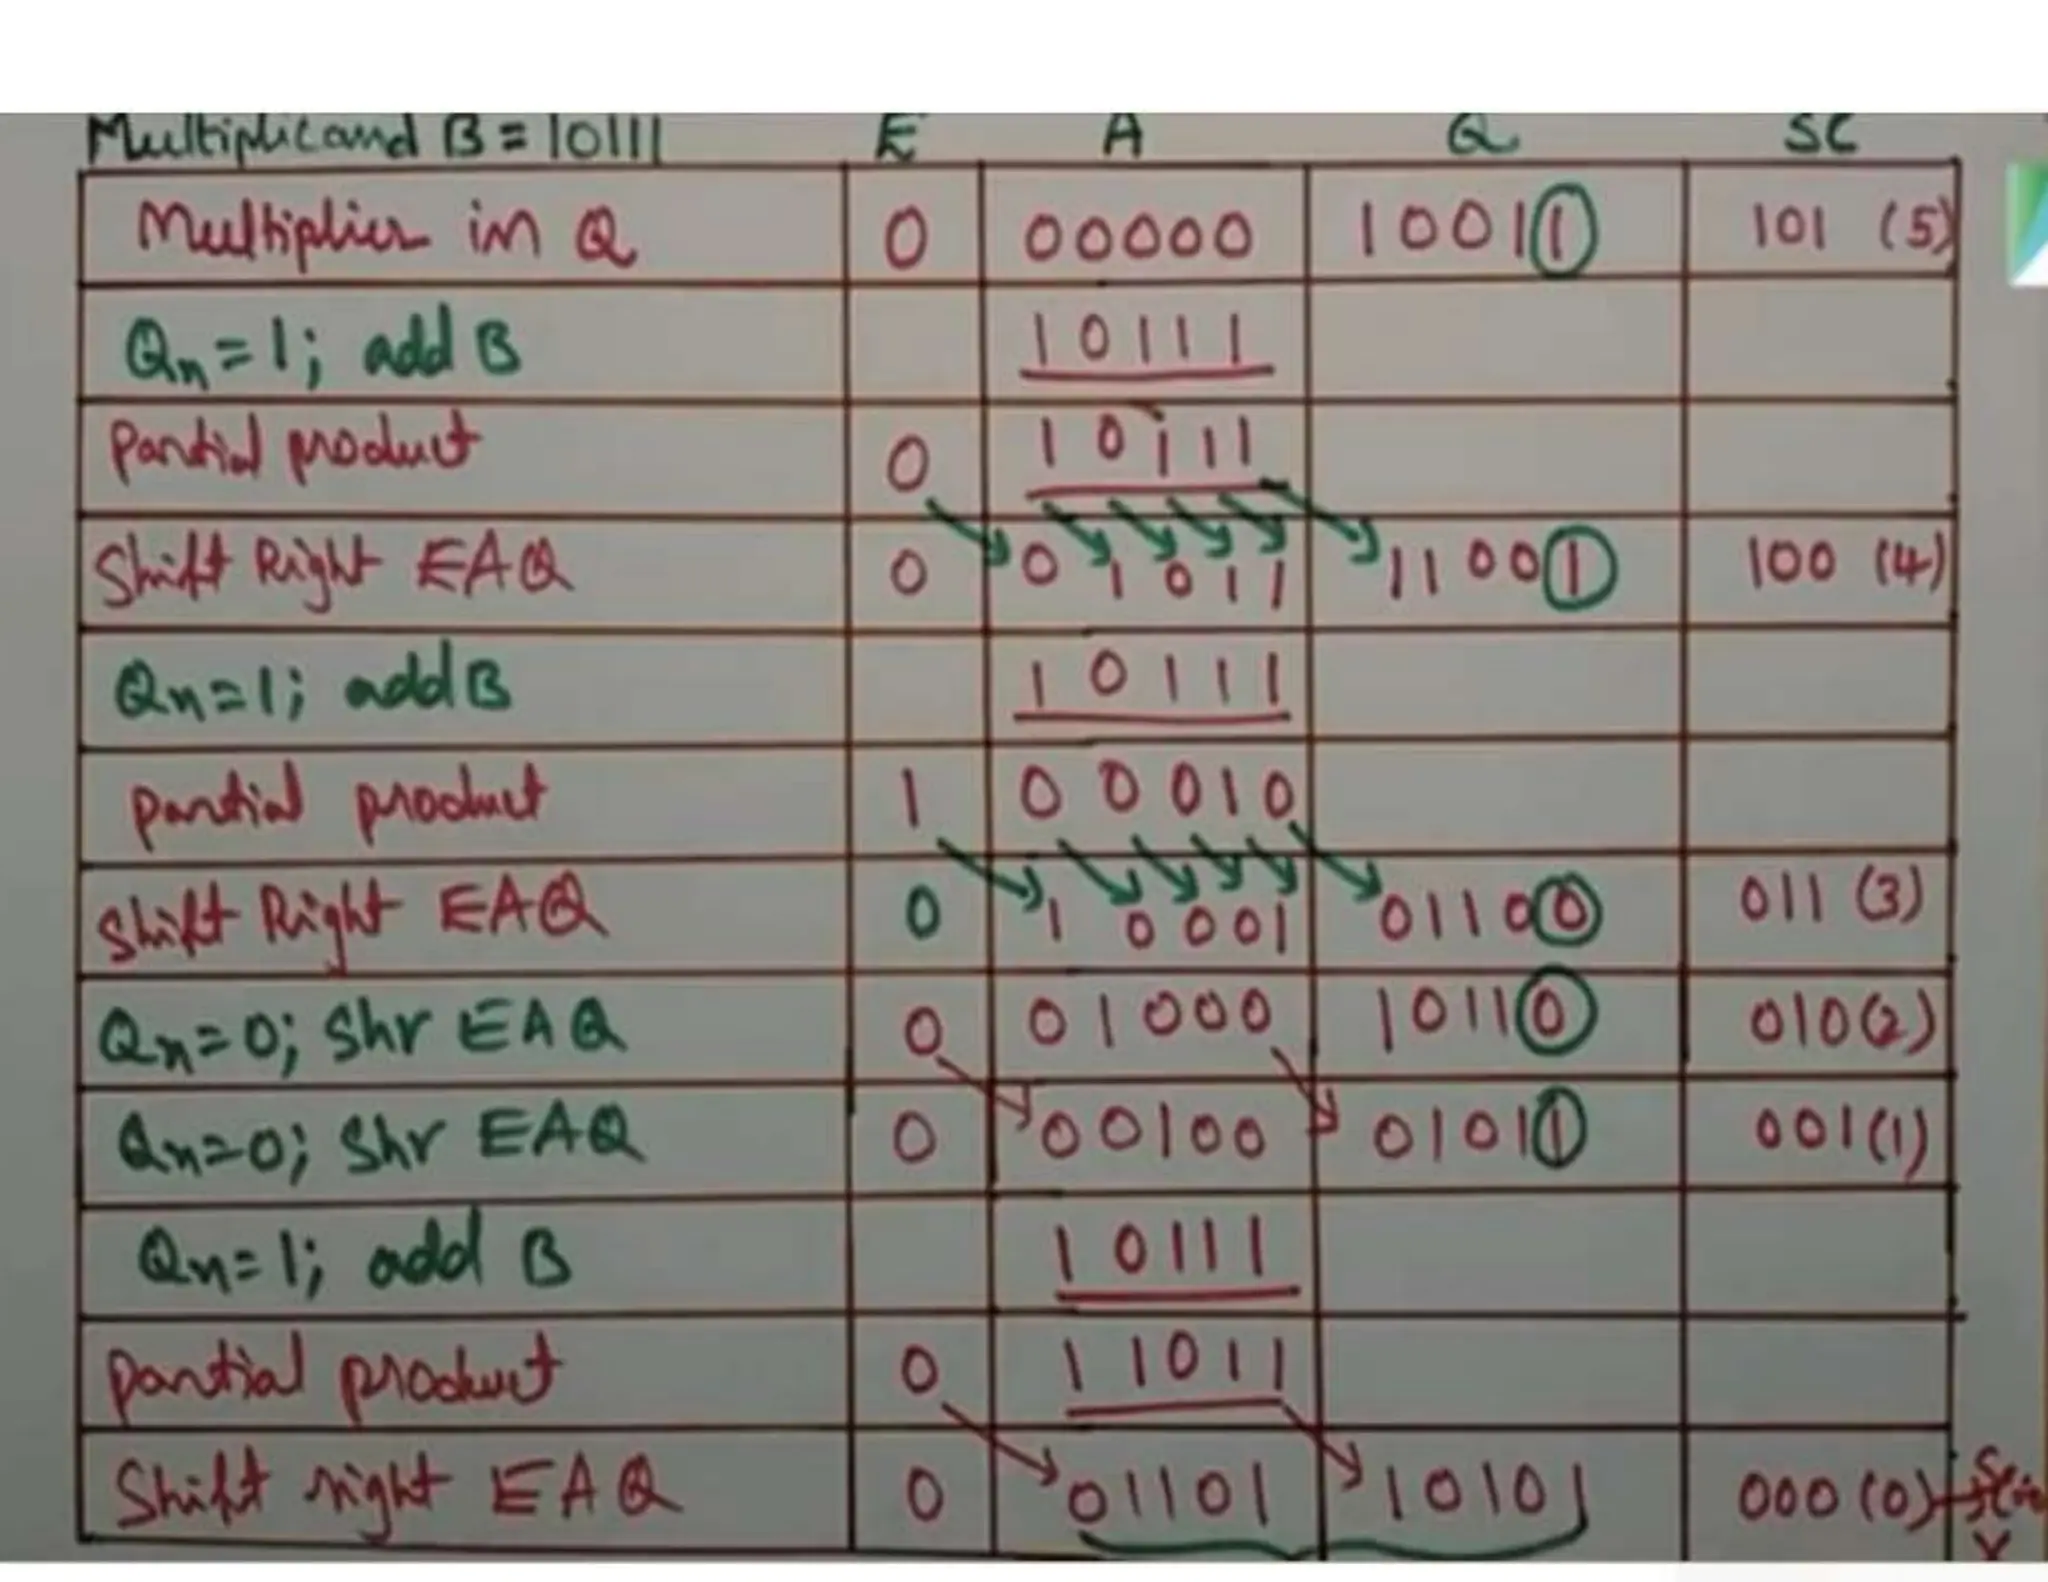 Multiplicand B = 10111 E A Q SC
Multiplier in Q 0 00000 10011 101 (5)
Qn=1; add B 10111
Partial product 0 10111
Shift Right EAQ 0 01011 11001 100 (4)
Qn=1; add B 10111
partial product 1 00010
Shift Right EAQ 0 10001 01100 011 (3)
Qn=0; Shr EAQ 0 01000 10110 010(2)
Qn=0; Shr EAQ 0 00100 01011 001(1)
Qn=1; add B 10111
partial product 0 11011
Shift right EAQ 0 01101 10101 000 (0)